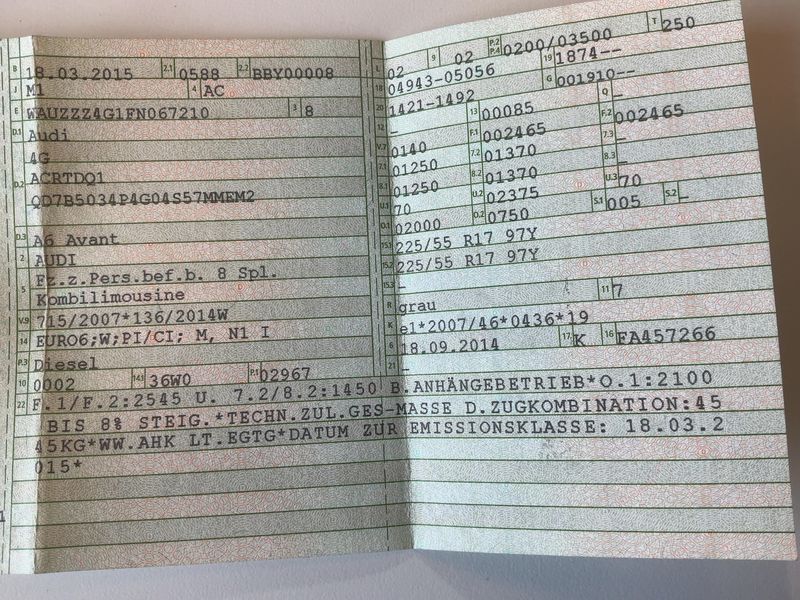 B 18.03.2015 2.1 0588 2.2 BBY00008
J M1 4 AC
E WAUZZZ4G1FN067210 3 8
D.1 Audi
4G
D.2 ACRTDQ1
QD7B5034P4G04S57MMEM2
D.3 A6 Avant
2 AUDI
5 Fz.z.Pers.bef.b. 8 Spl.
Kombilimousine
V.9 715/2007*136/2014W
14 EURO6;W;PI/CI; M, N1 I
P.3 Diesel
10 0002 14.1 36W0 P.1 02967
22 F.1/F.2:2545 U. 7.2/8.2:1450 B.ANHÄNGEBETRIEB*O.1:2100
BIS 8% STEIG.*TECHN.ZUL.GES-MASSE D.ZUGKOMBINATION:45
45KG*WW.AHK LT.EGTG*DATUM ZUR EMISSIONSKLASSE: 18.03.2
015*
L 02 9 02 P.2 P.4 0200/03500 T 250
18 04943-05056 19 1874--
20 1421-1492 G 001910--
12 - 13 00085 Q -
V.7 0140 F.1 002465 F.2 002465
7.1 01250 7.2 01370 7.3 -
8.1 01250 8.2 01370 8.3 -
U.1 70 U.2 02375 U.3 70
O.1 02000 O.2 0750 S.1 005 S.2 -
15.1 225/55 R17 97Y
15.2 225/55 R17 97Y
15.3 -
R grau 11 7
K e1*2007/46*0436*19
6 18.09.2014 17 K 16 FA457266
21 -